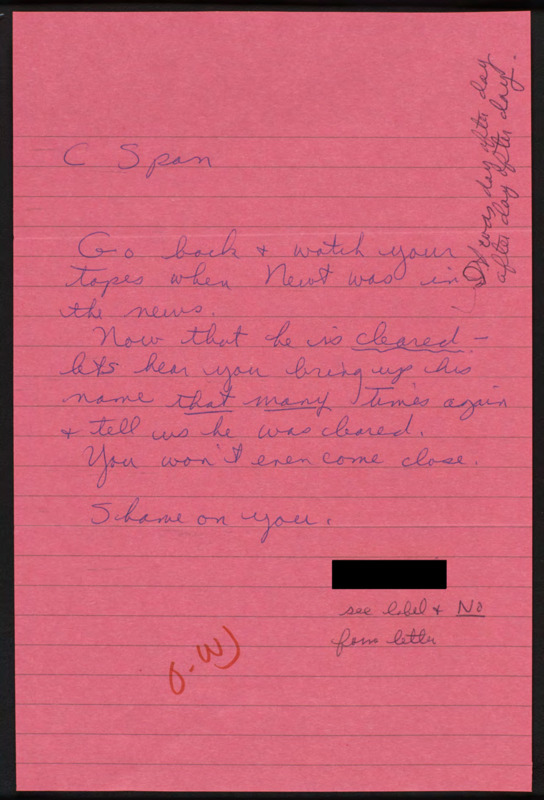 C Span
Go back + watch your
tapes when Newt was in
the news.
Now that he is cleared -
lets hear you bring up his
name that many times again
+ tell us he was cleared.
You won't even come close.
Shame on you.
It was day after day
after day after day.
see label + No
form letter